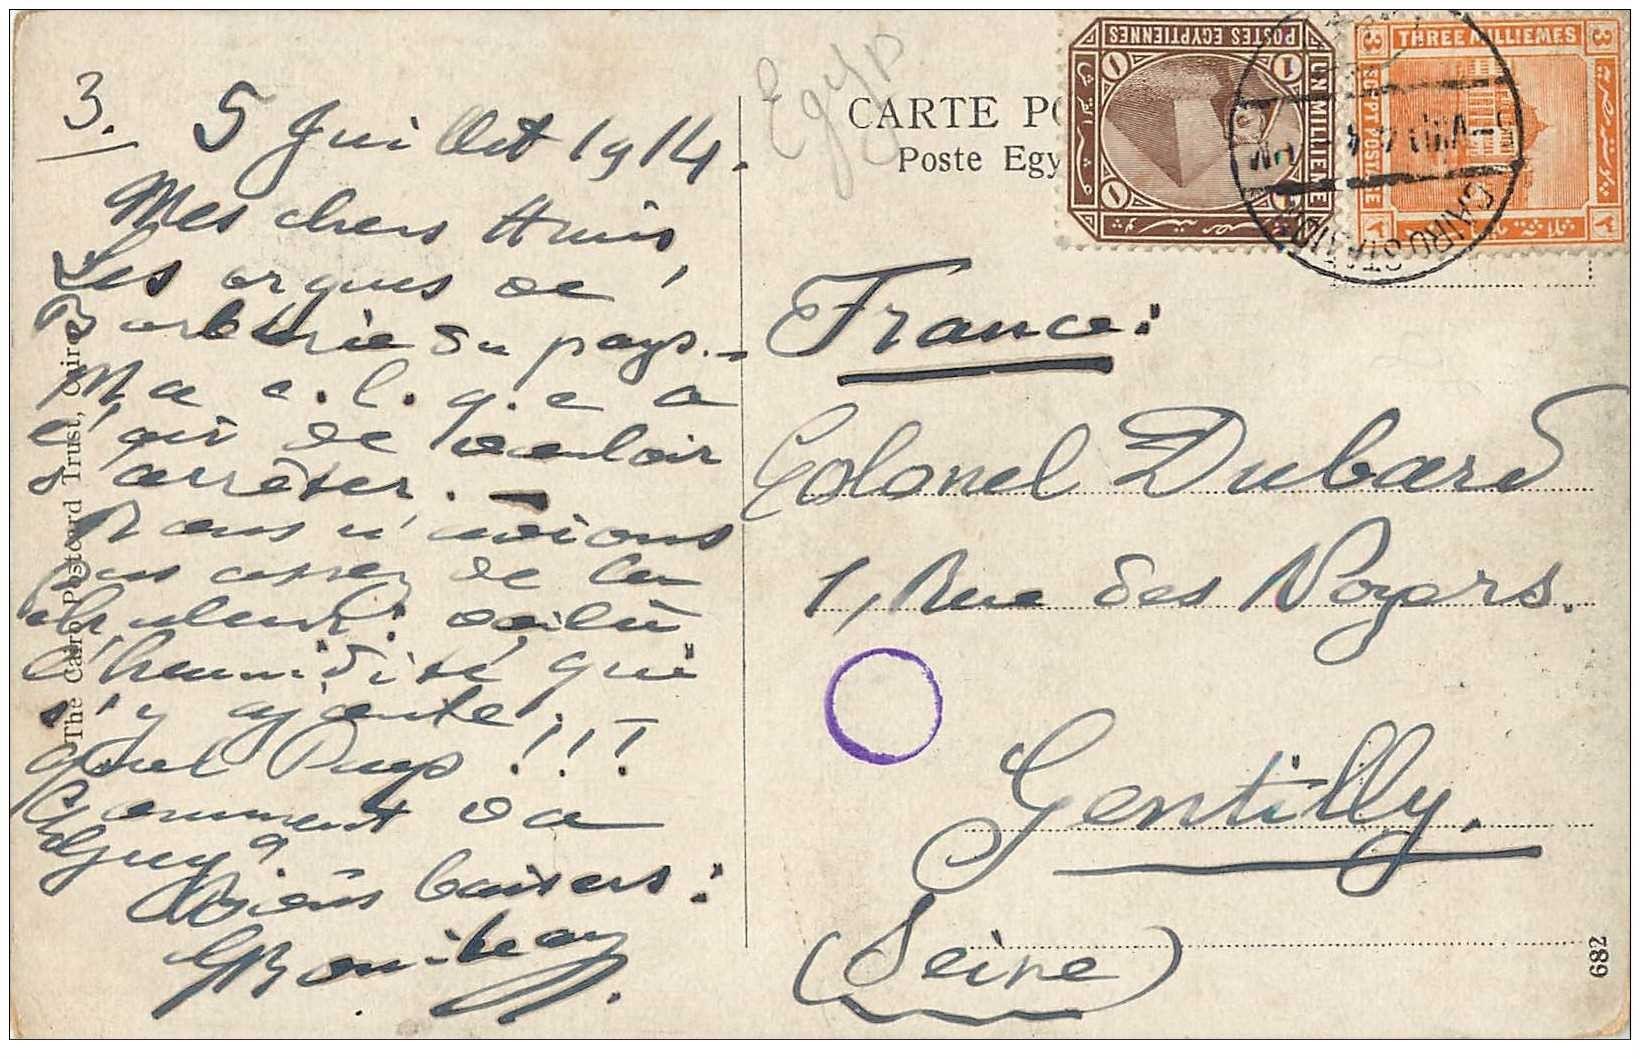 3. 5 Juillet 1914.
Mes chers Amis,
Les orgues de
Barbarie du pays. —
Ma c.l.q.e a
l'air de vouloir
s'arrêter. —
Nous n'avions
pas assez de la
chaleur: voilà
l'humidité qui
s'y ajoute!!!
quel Pays!!!
Comment va
Guy?
Bons baisers:
The Cairo Postcard Trust, Cairo
Egyp
CARTE PO
Poste Egy
POSTES EGYPTIENNES
UN MILLIEME
1
1
THREE MILLIEMES
EGYPT POSTAGE
3
3
٢
CAIRO STATION
PM
France:
Colonel Dubard
1, Rue des Noyers.
Gentilly.
(Seine)
682